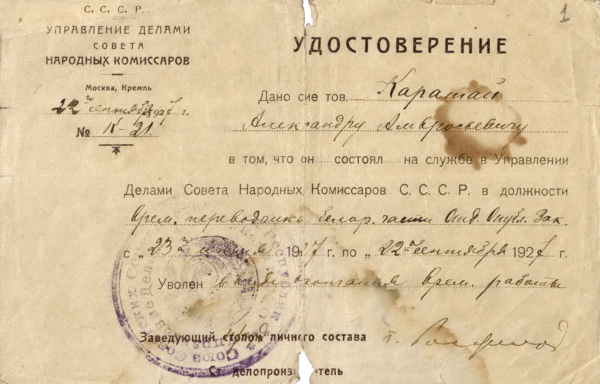 С. С. С. Р.
УПРАВЛЕНИЕ ДЕЛАМИ
СОВЕТА
НАРОДНЫХ КОМИССАРОВ
Москва, Кремль
22 сентября 1927 г.
№ К-21
1
УДОСТОВЕРЕНИЕ
Дано сие тов. Каратай
Александру Амвросьевичу
в том, что он состоял на службе в Управлении
Делами Совета Народных Комиссаров С. С. С. Р. в должности
Врем. переводчика белор. части Отд. Опубл. Зак.
с „23" 1927 г. по „22" сентября 1927 г.
Уволен окончания врем. работы
Заведующий столом личного состава
Ст. делопроизводитель